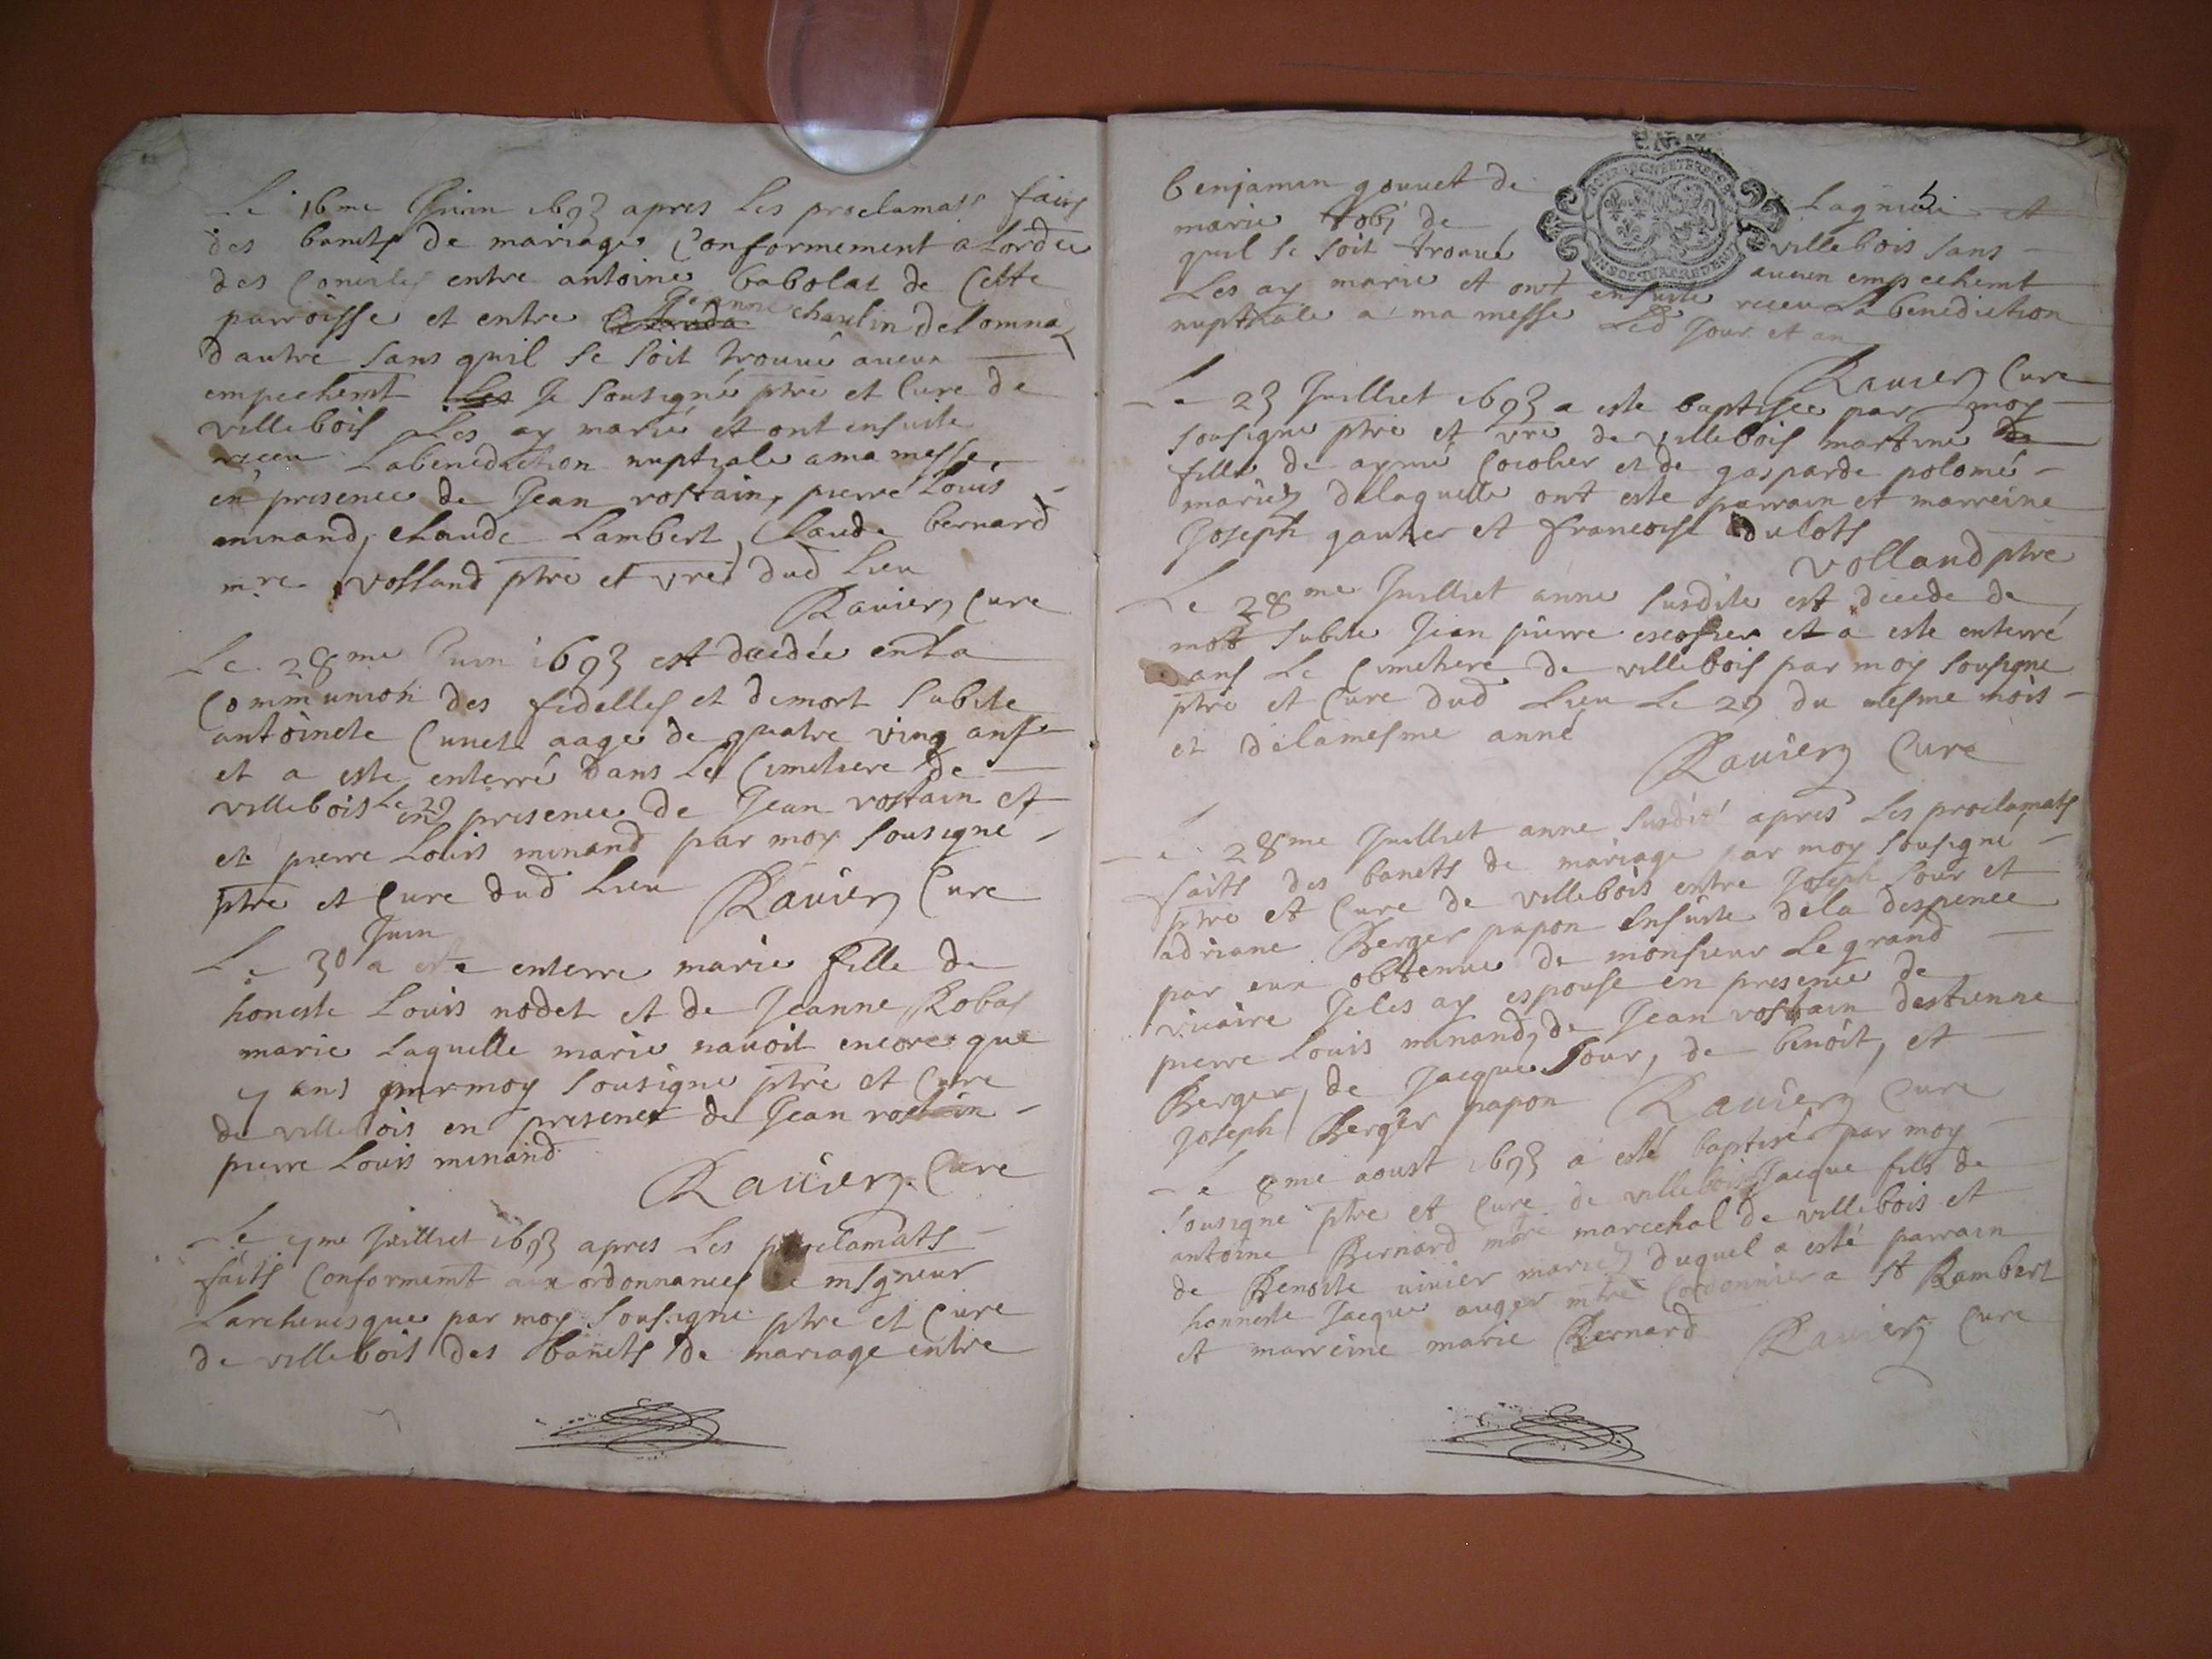 Le 16me Juin 1693 apres les proclamats faits
des bancts de mariage Conformement a lordre
des Conciles entre antoine babolat de Cette
parroisse et entre Jeanne chaulin delomna
dautre sans quil se soit trouué aucun
empechemt Je sousigné ptre et Cure de
villebois Les ay marié et ont ensuite
receu Labenediction nuptiale a ma messe
en presence de Jean rostain, pierre Louis
minand, claude Lambert, Claude bernard
mre volland ptre et vre dud Lieu
Rauier Cure
Le 28me Juin 1693 est decedée en La
Communion des fidelles et de mort subite
antoinete Cunet aage de quatre ving ans
et a este enterré dans Le Cimetiere de
villebois Le 29 en presence de Jean rostain et
et pierre Louis minand par moy sousigné
ptre et Cure dud Lieu Rauier Cure
Le 30 Juin a este enterre marie fille de
honeste Louis nodet et de Jeanne Robas
marie Laquelle marie nauoit encore que
7 ans par moy sousigne ptre et Cure
de villebois en presence de Jean rostain
pierre Louis minand
Rauier Cure
Le 7me Juilliet 1693 apres Les proclamats
faits Conformemt aux ordonnances de msgneur
Larcheuesque par moy sousigne ptre et Cure
de villebois des bancts de mariage entre
5
benjamin gouuet de Lagnieu et
marie tobj de villebois sans
quil se soit trouué aucun empechemt
Les ay marie et ont ensuite receu La benediction
nuptiale a ma messe Led Jour et an
Rauier Cure
Le 23 Juilliet 1693 a este baptisee par moy
sousigne ptre et vre de villebois martine
fille de aymé Cocolier et de gasparde polomé
mariez delaquelle ont este parrain et marreine
Joseph gautier et francoise dulots
volland ptre
Le 28me Juilliet anne susdite est decede de
mort subite Jean pierre escofier et a este enterré
dans Le Cimetiere de villebois par moy sousigne
ptre et Cure dud Lieu Le 29 du mesme mois
et delamesme anné
Rauier Cure
Le 28me Juilliet anne susdite apres Les proclamats
faits des bancts de mariage par moy sousigné
ptre et Cure de villebois entre Joseph Sour et
adriane Berger papon Ensuite dela despence
par eux obtenue de monsieur Le grand
vicaire Je les ay espouse en presence de
pierre Louis minand, de Jean rostain destienne
Berger, de Jacque Sour, de benoit, et
Joseph Berger papon Rauier Cure
Le 8me aoust 1693 a esté baptisé par moy
sousigne ptre et Cure de villebois Jacque fils de
antoine Bernard mtre marechal de villebois et
de Benoite uiuier mariez duquel a esté parrain
honneste Jacque auger mtre Cordonnier a st Rambert
et marreine marie Bernard Rauier Cure